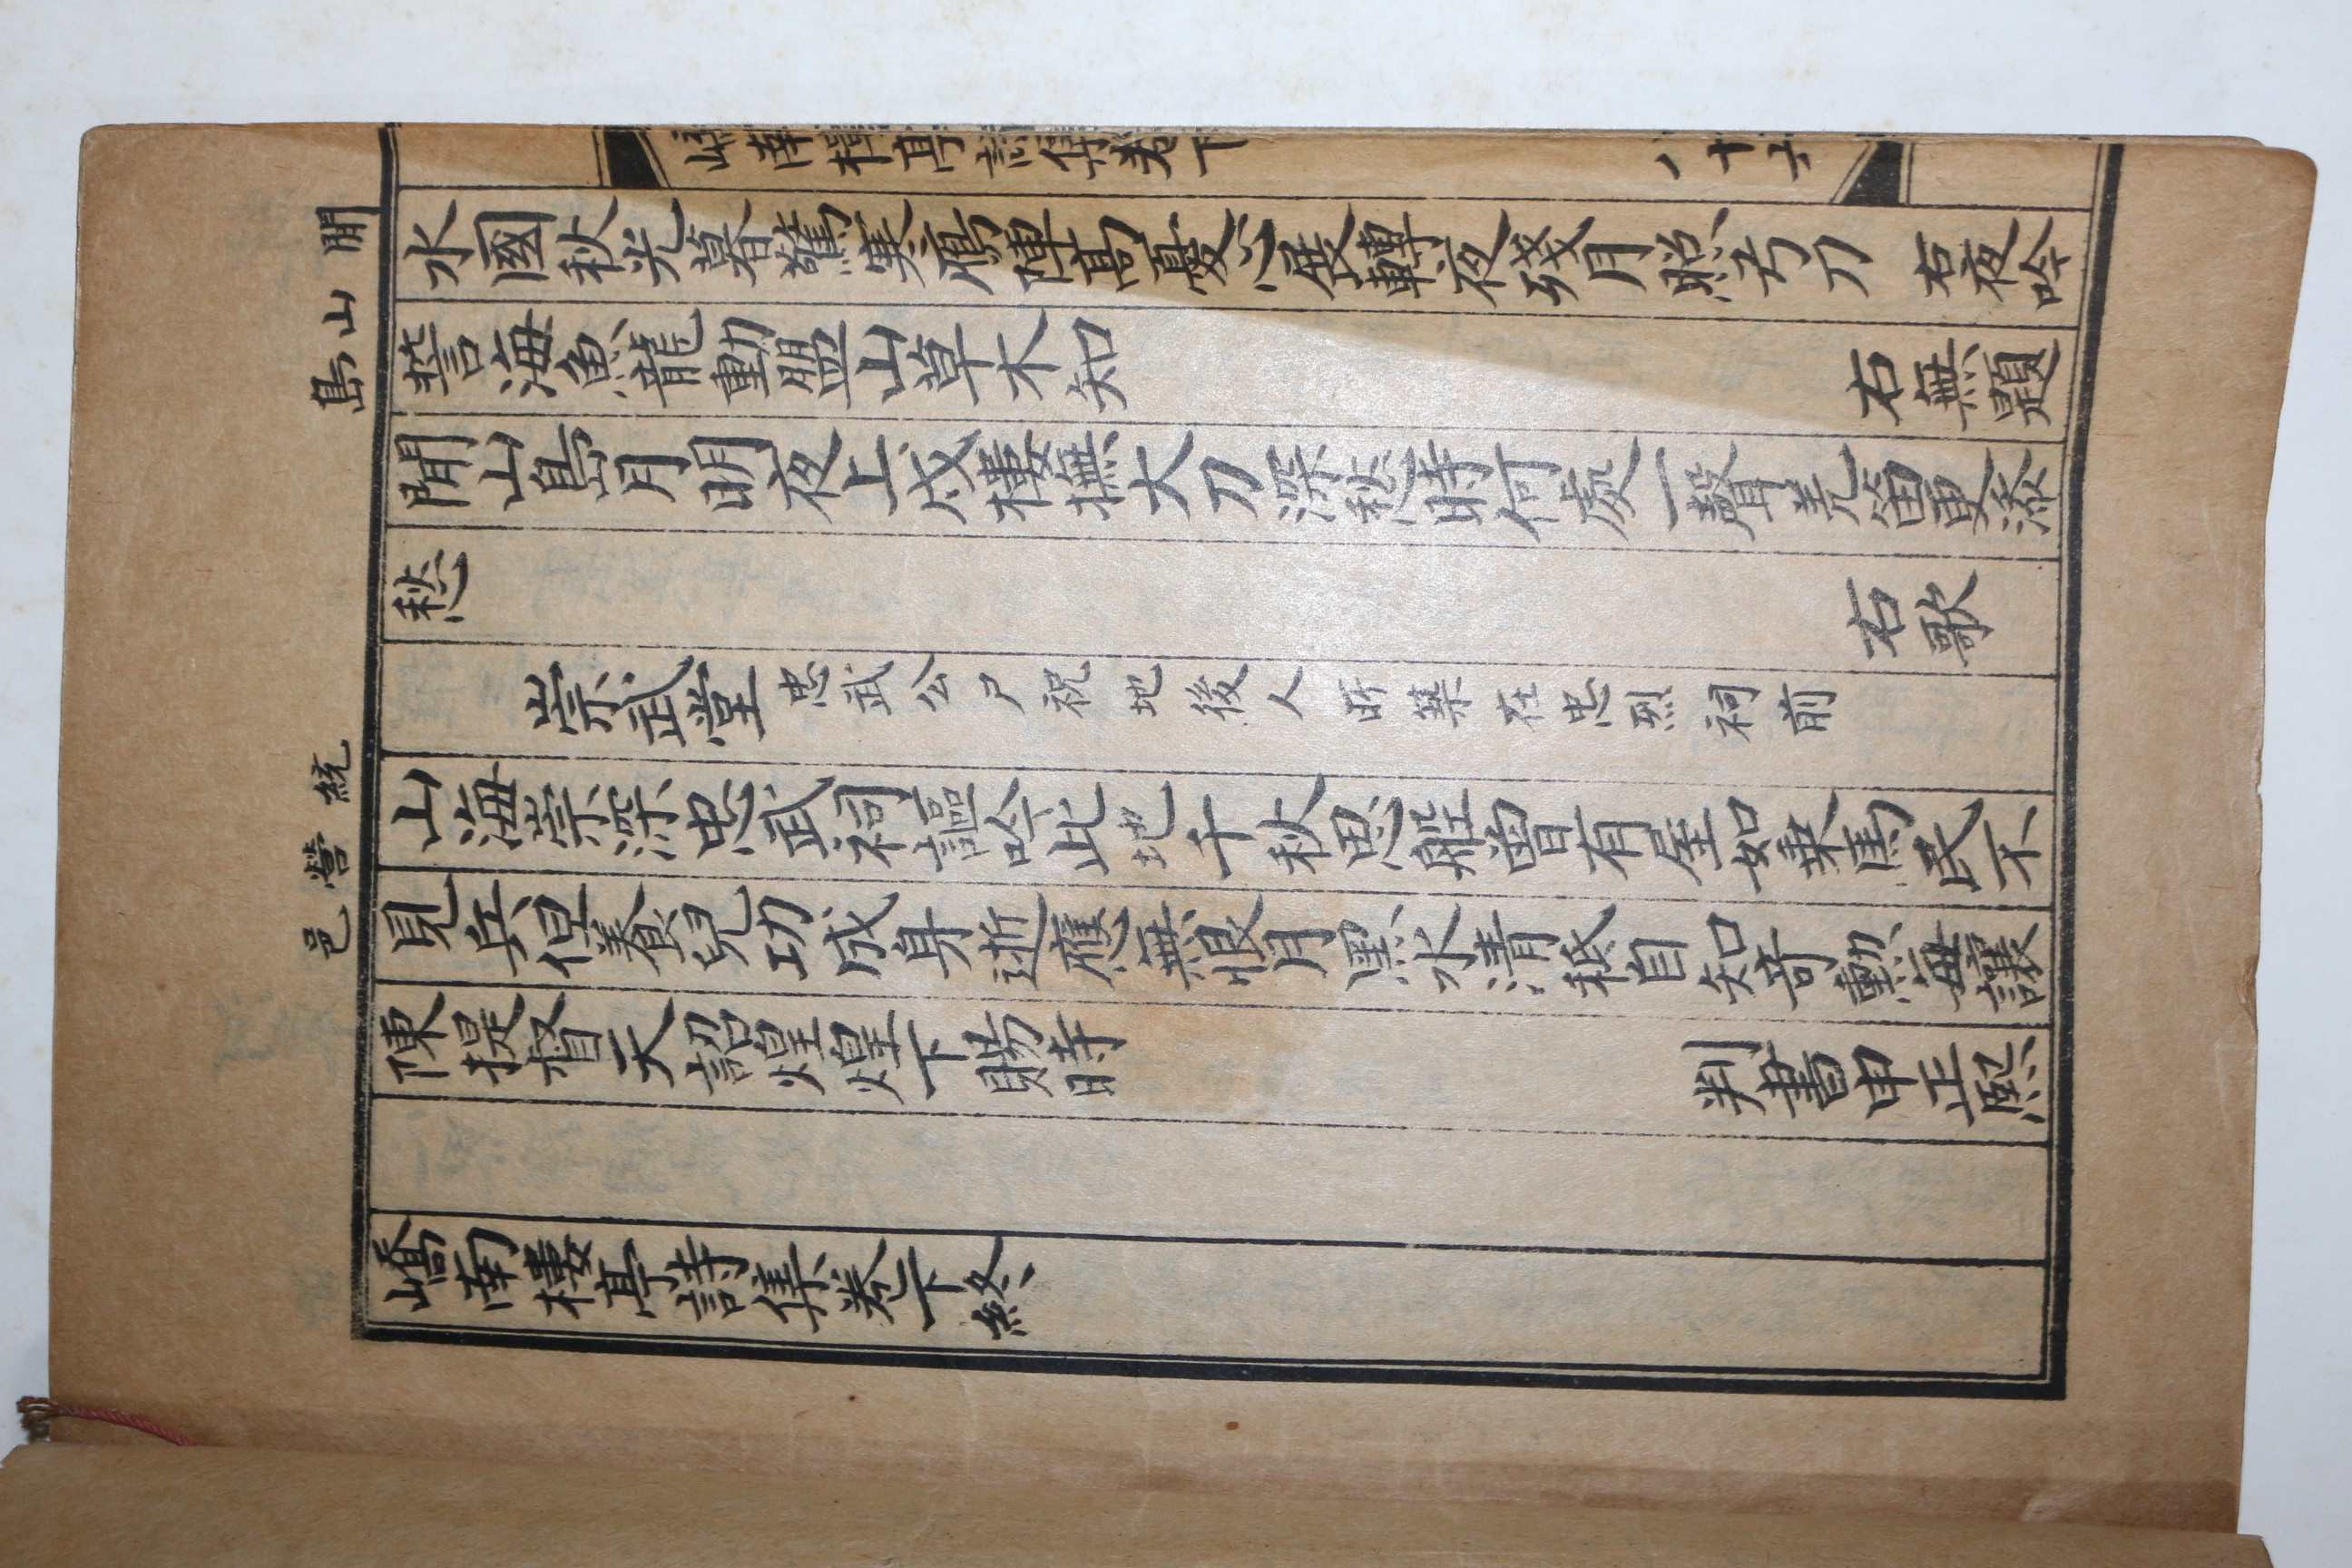 嶠南樓亭詩集卷下
閒山島
水國秋光暮驚寒鴈陣高憂心輾轉夜殘月照弓刀 右夜吟
誓海魚龍動盟山草木知 右無題
閒山島月明夜上戍樓撫大刀深愁時何處一聲羌笛更添
愁 右歌
統營邑
崇武堂 忠武公尸祝地後人所築在忠烈祠前
山海崇深忠武祠謳吟此地千秋思船曾有屋如乘馬民不
見兵但養兒功成身逝應無恨月黑水清秪自知奇勳海讓
陳提督天詔煌煌下賜時 判書申正熙
嶠南樓亭詩集卷下終